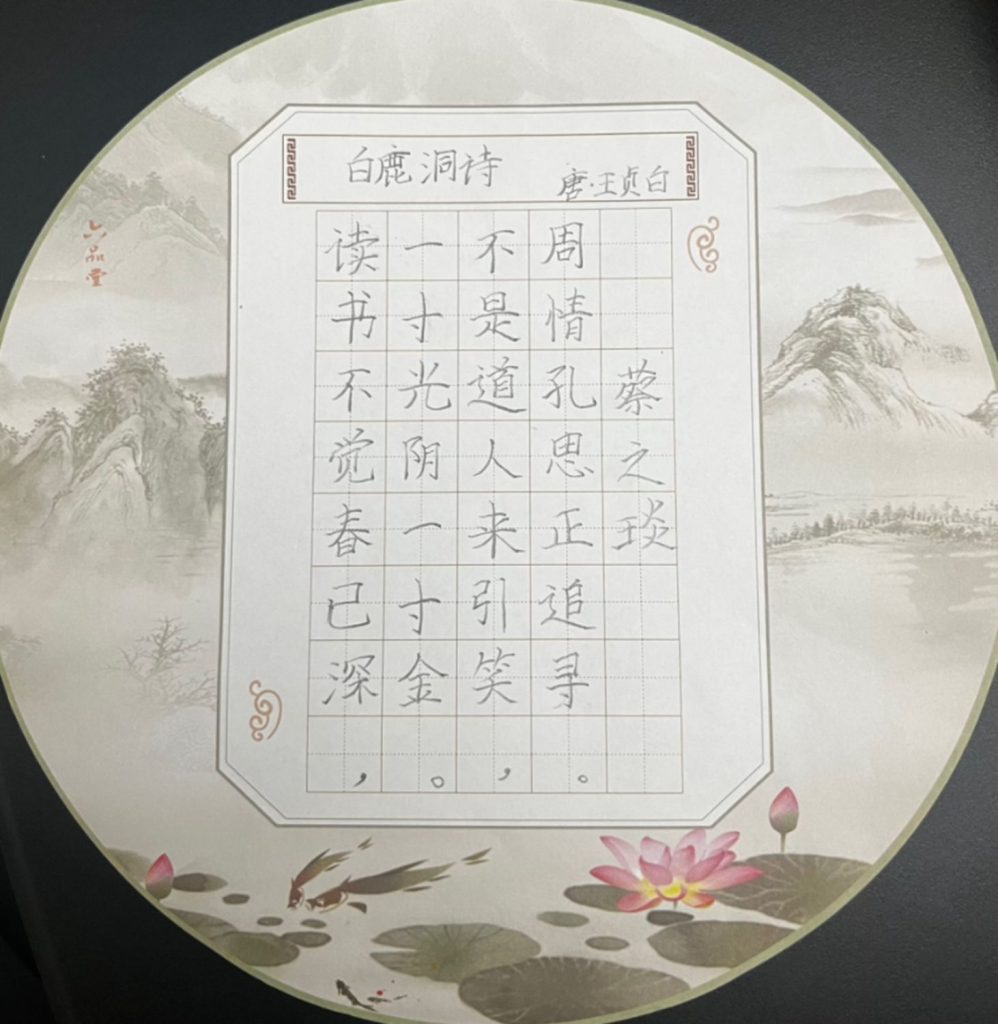 白鹿洞诗
唐·王贞白
读书不觉春已深，
一寸光阴一寸金。
不是道人来引笑，
周情孔思正追寻。
蔡之琰
六品堂